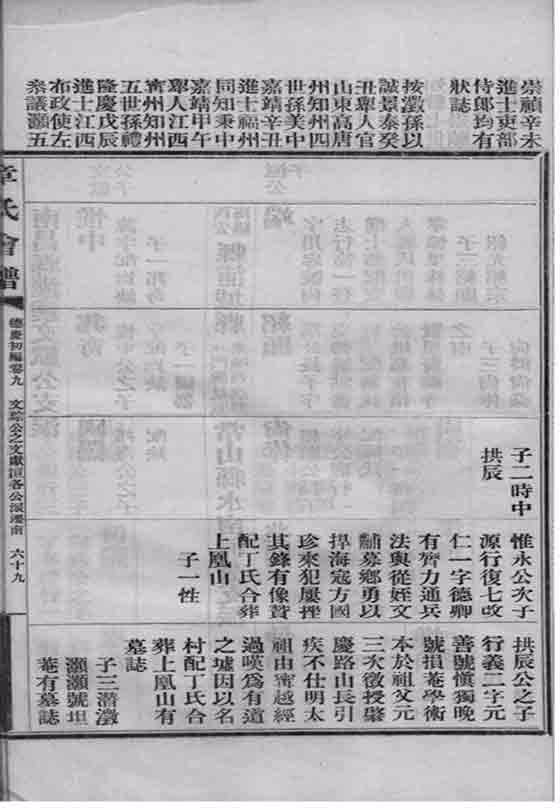 崇禎辛未
進士吏部
侍郎均有
狀誌
按瀓孫以
誠景泰癸
丑舉人官
山東高唐
州知州四
世孫美中
嘉靖辛丑
進士福州
同知秉中
嘉靖甲午
舉人江西
甯州知州
五世孫禮
隆慶戊辰
進士江西
布政使左
叅議灝五
子二時中
拱辰
惟永公次子
源行復七改
仁一字德卿
有膂力通兵
法與從姪文
黼募鄉勇以
捍海寇方國
珍來犯屢挫
其鋒有像贊
配丁氏合葬
上凰山
子一性
拱辰公之子
行義二字元
善號慎獨晚
號損菴學術
本於祖父元
三次徵授肇
慶路山長引
疾不仕明太
祖由甯越經
過嘆爲有道
之墟因以名
村配丁氏合
葬上凰山有
墓誌
子三潛瀓
灝灝號坦
菴有墓誌
章氏會譜
德慶初編卷九
六十九